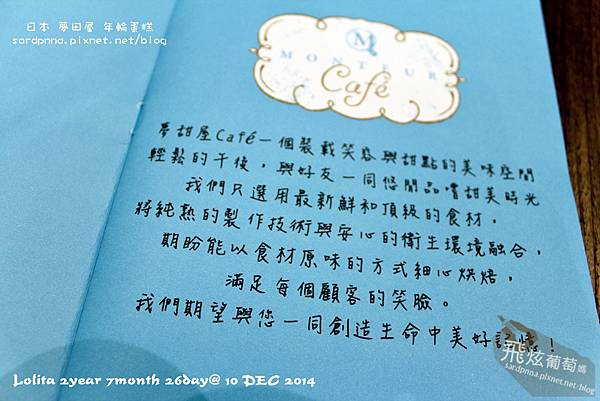 日本 夢田屋 年輪蛋糕
sardpnna.pixnet.net/blog
M
MONTEUR
Café
夢甜屋Café一個裝載笑容與甜點的美味空間
輕鬆的午後，與好友一同悠閒品嚐甜美時光
我們只選用最新鮮和頂級的食材，
將純熟的製作技術與安心的衛生環境融合，
期盼能以食材原味的方式細心烘焙，
滿足每個顧客的笑臉。
我們期望與您一同創造生命中美好記憶！
飛炫葡萄媽
sardpnna.pixnet.net/blog
Lolita 2year 7month 26day@ 10 DEC 2014